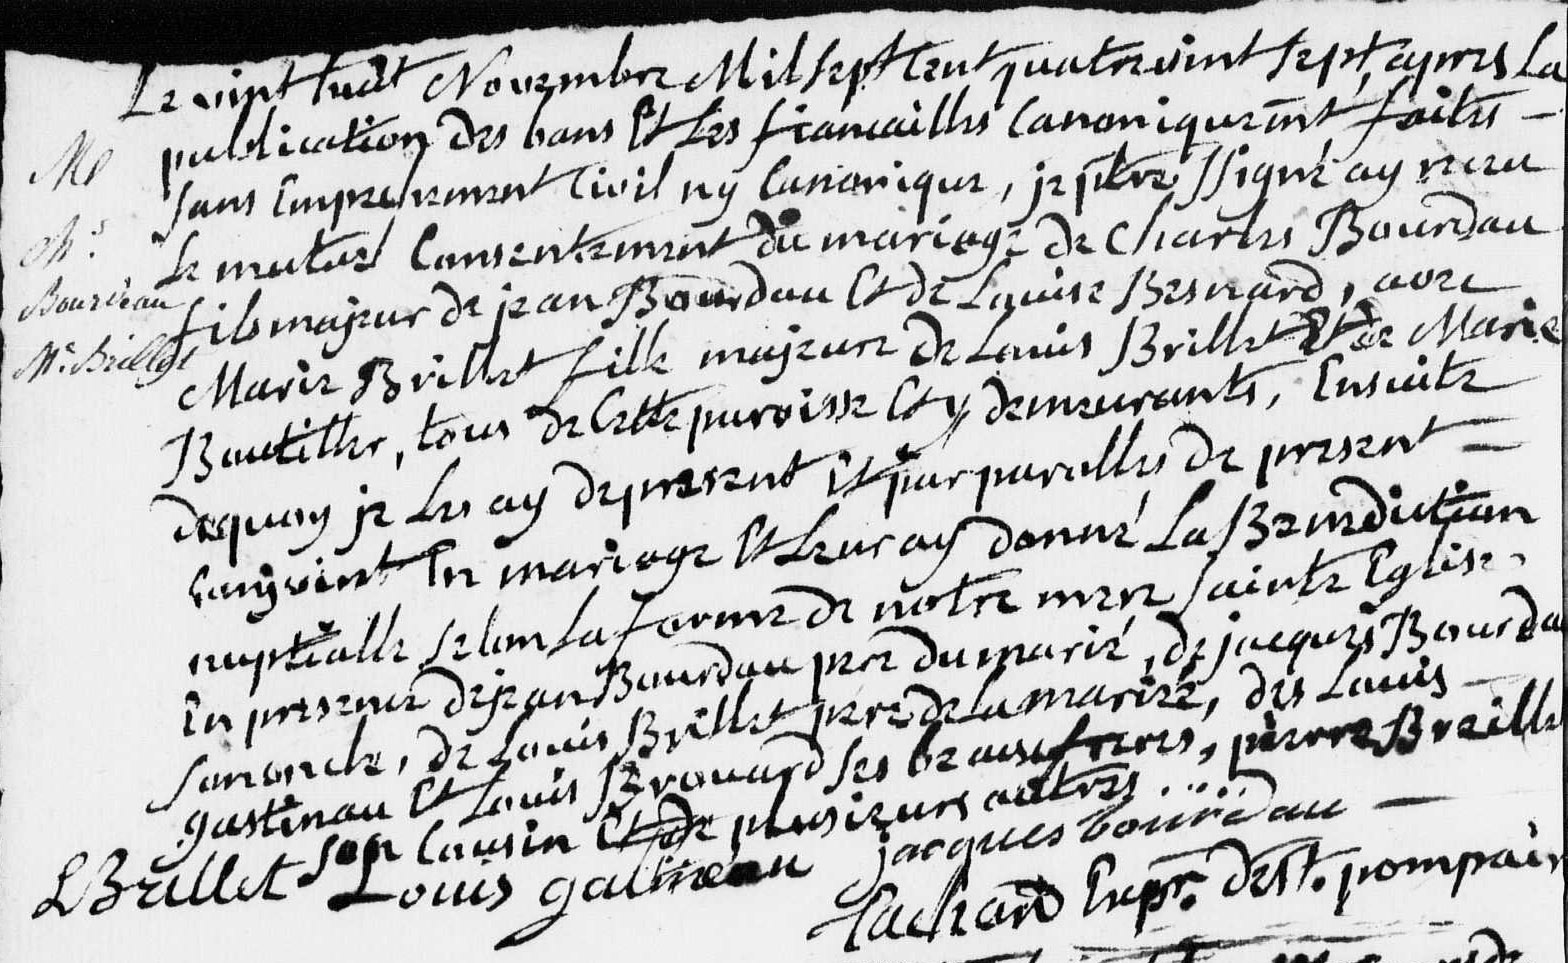 Le vint huit Novembre Mil sept cent quatrevint sept, apres La
publication des bans Et Les fiancailles Canoniquemnt faites
sans Empeschement Civil ny Canonique, je ptre ssigné ay receu
Le mutuel Consentement du mariage de Charles Bourdau
fils majeur de jean Bourdau Et de Louise Besnard, avec
Marie Brillet fille majeure de Louis Brillet Et de Marie
Boutiller, tous de Cette paroisse Et y demeurants, Ensuite
dequoy je Les ay depresent Et par parolles de present
Conjoint En mariage Et Leur ay donné La Benediction
nuptialle selon La forme de notre mere sainte Eglise
En presence de jean Bourdau pere du marié, de jacques Bourdau
son oncle, de Louis Brillet pere de La mariée, des Louis
gastineau Et Louis Brouard ses beaufreres, pierre Breillet
son Cousin Et de plusieurs autres
M
Ch.s
Bourdeau
M. Brillet
LBrillet Louis gatineau jacques bourdau
Tachard Enpr. de St. pompain